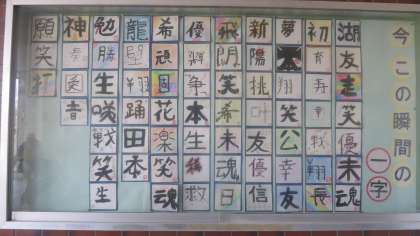 今この瞬間の
一字
湖友走笑優未魂
初育寿幸戦翔長
夢本翔笑公幸友
新陽挑叶友優信
飛朗笑希未魂日
優翔争本生救
希頑周花楽笑魂
龍翔踊田本
勉勝生咲戦笑生
神医音
願笑打